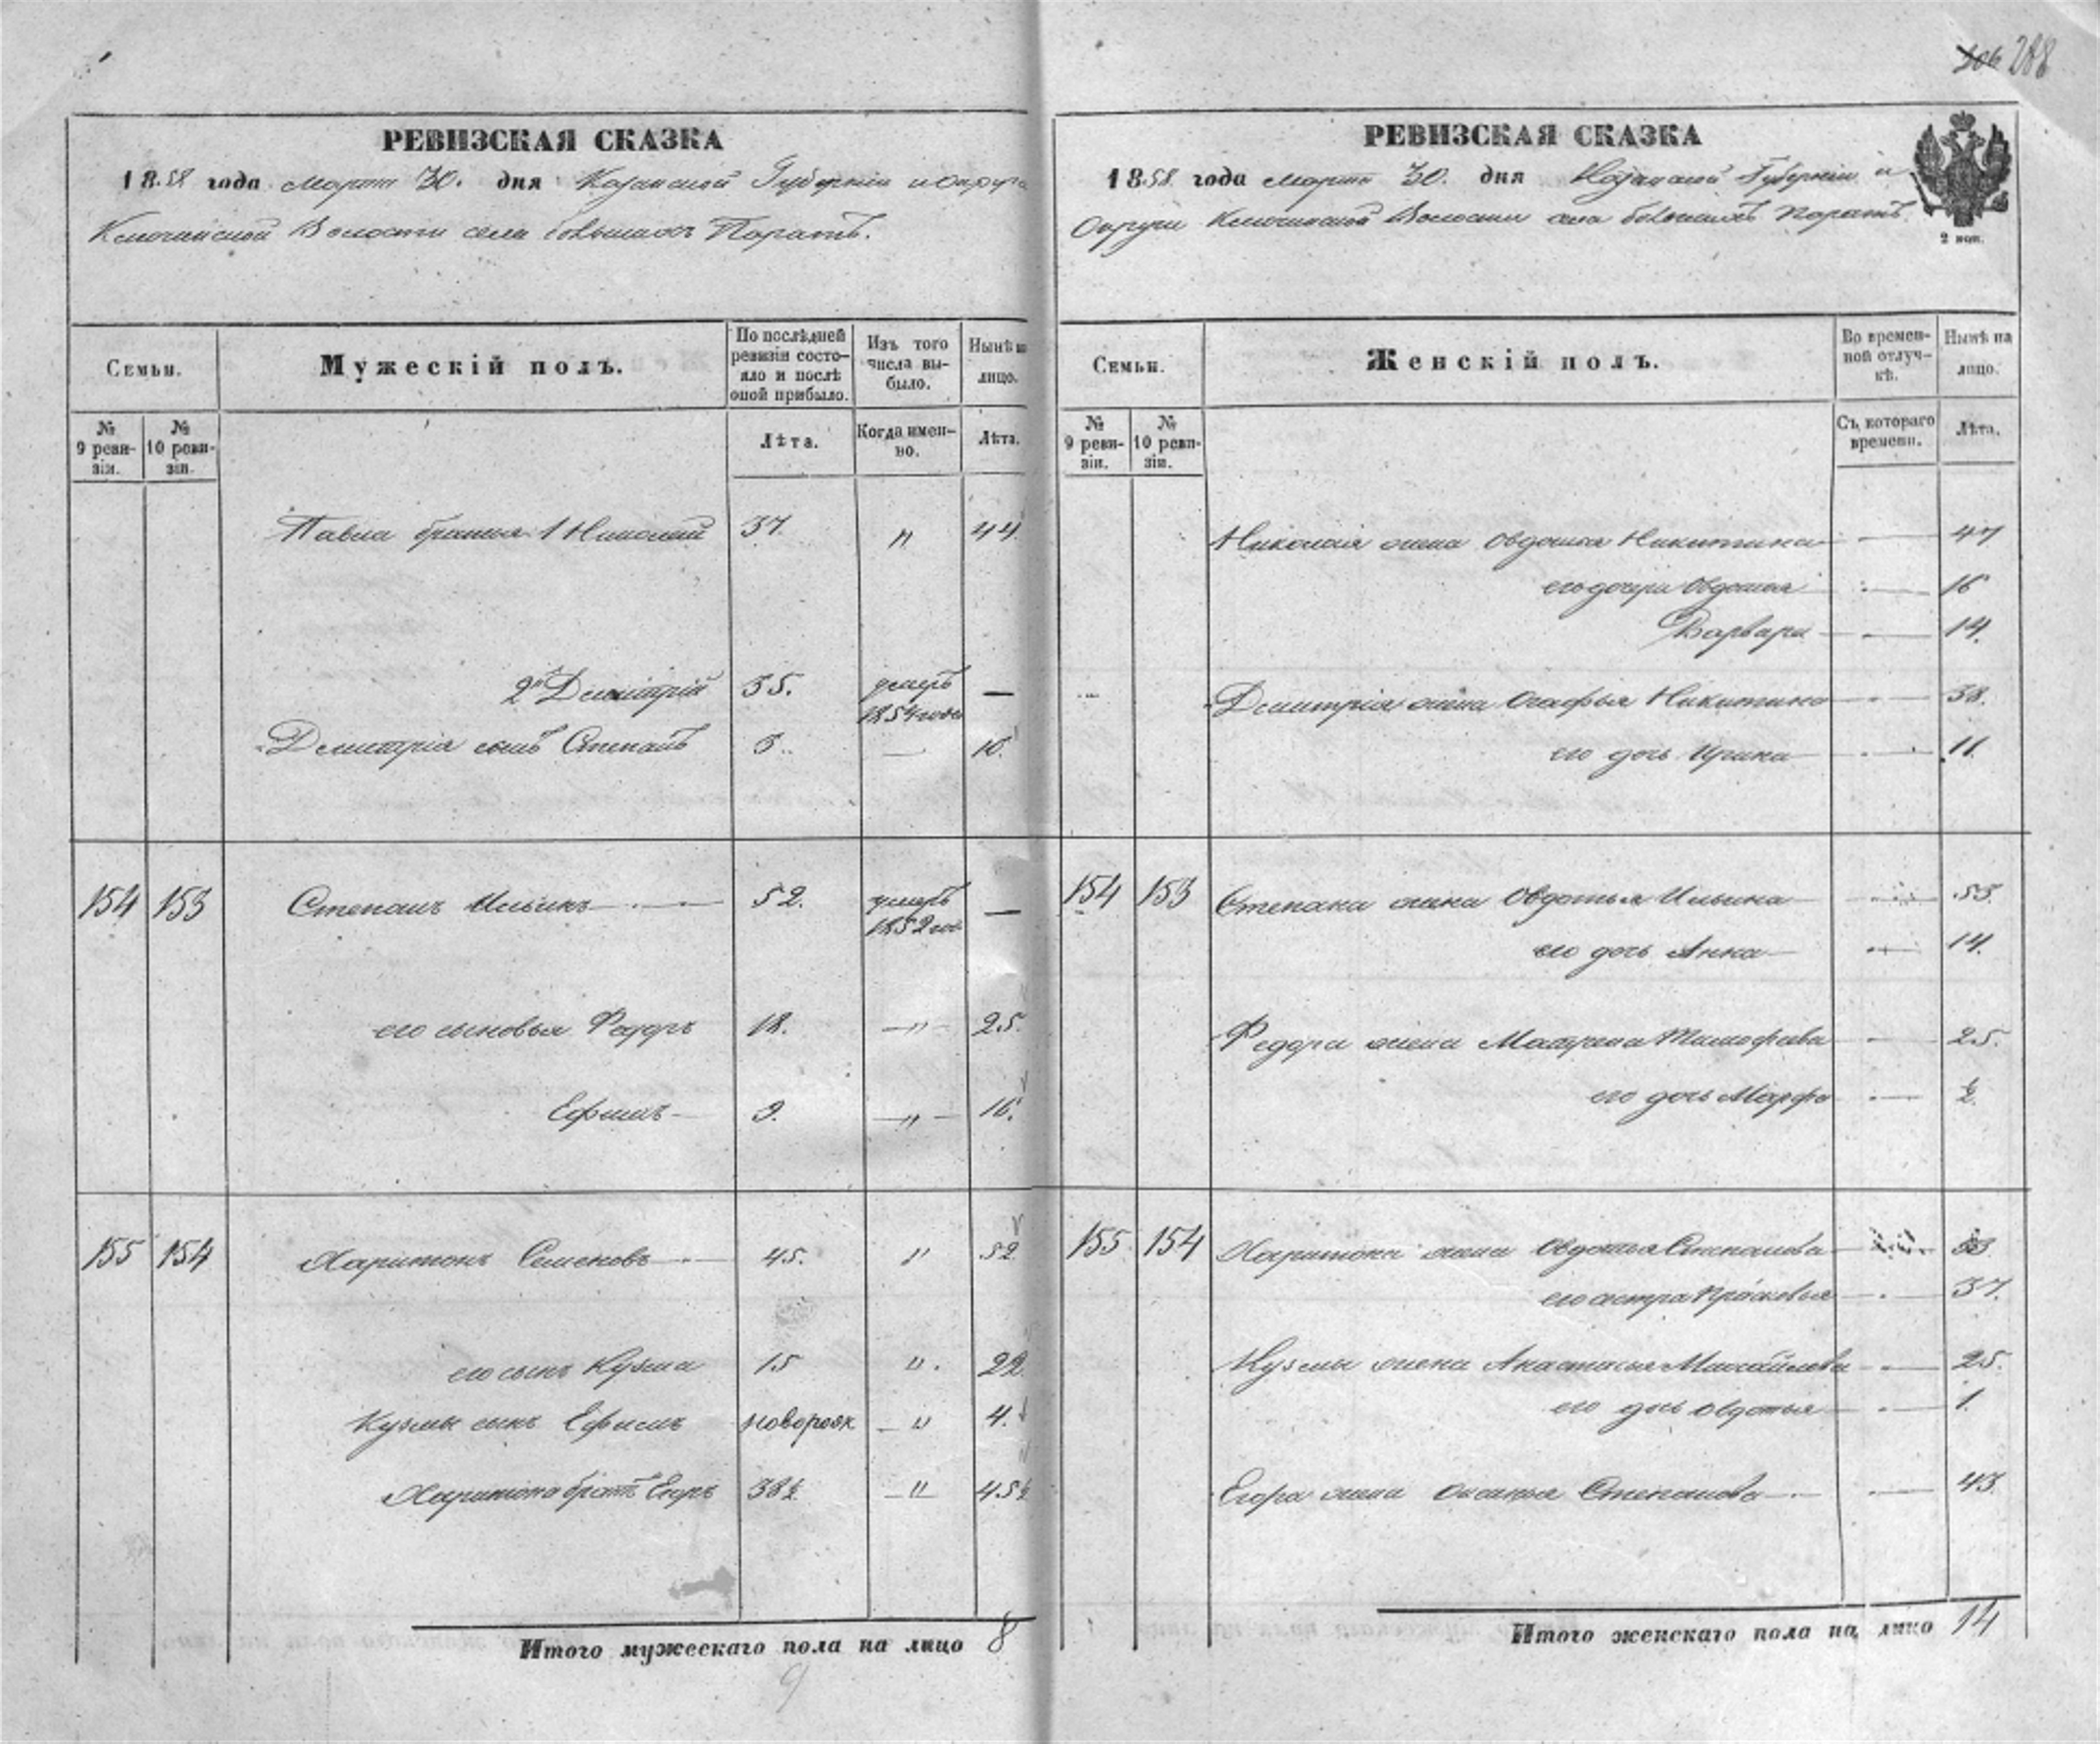 206 288
РЕВИЗСКАЯ СКАЗКА
1858 года марта 30. дня Казанской Губернии и округа
Ключинской Волости села большихъ Поратъ.
Семьи.
Мужескій полъ.
По послѣдней ревизіи состояло и послѣ оной прибыло.
Изъ того числа выбыло.
Нынѣ на лицо.
№ 9 ревизіи.
№ 10 ревизіи.
Лѣта.
Когда именно.
Лѣта.
Павла братья 1 Николай 37. " 44
2й Демитрій 35. умеръ 1854 года —
Демитрія сынъ Степанъ — 
154 153 Степанъ Ильинъ 52. умеръ 1852 го —
его сыновья Федоръ 18. —"— 25.
Ефимъ 9. —"— 16.
155 154 Харитонъ Семеновъ 45. " 52
его сынъ Кузма 15 ". 22
Кузмы сынъ Ефимъ новорож —" 4.
Харитона братъ Егоръ 38½ —"— 45½
Итого мужескаго пола на лицо 8
9
РЕВИЗСКАЯ СКАЗКА
1858 года марта 30. дня Казанской Губерніи и
Округи Ключинской Волости села большихъ Поратъ
2 коп.
Семьи.
Женскій полъ.
Во временной отлучкѣ.
Нынѣ на лицо.
№ 9 ревизіи.
№ 10 ревизіи.
Съ котораго времени.
Лѣта.
Николая жена Овдотья Никитина — 47
его дочери Овдотья — 16
Варвара — 14.
Демитрія жена Огафья Никитина — 38.
его дочь Ирина — 11.
154 153 Степана жена Овдотья Ильина — 53.
его дочь Анна — 14.
Федора жена Матрена Тимофеева — 25.
его дочь Марфа — 
155 154 Харитона жена Овдотья Степанова — 53
его сестра Прасковья — 37.
Кузмы жена Анастасья Михайлова — 25.
его дочь Овдотья — 1.
Егора жена Оксинья Степанова — 43.
Итого женскаго пола на лицо 14